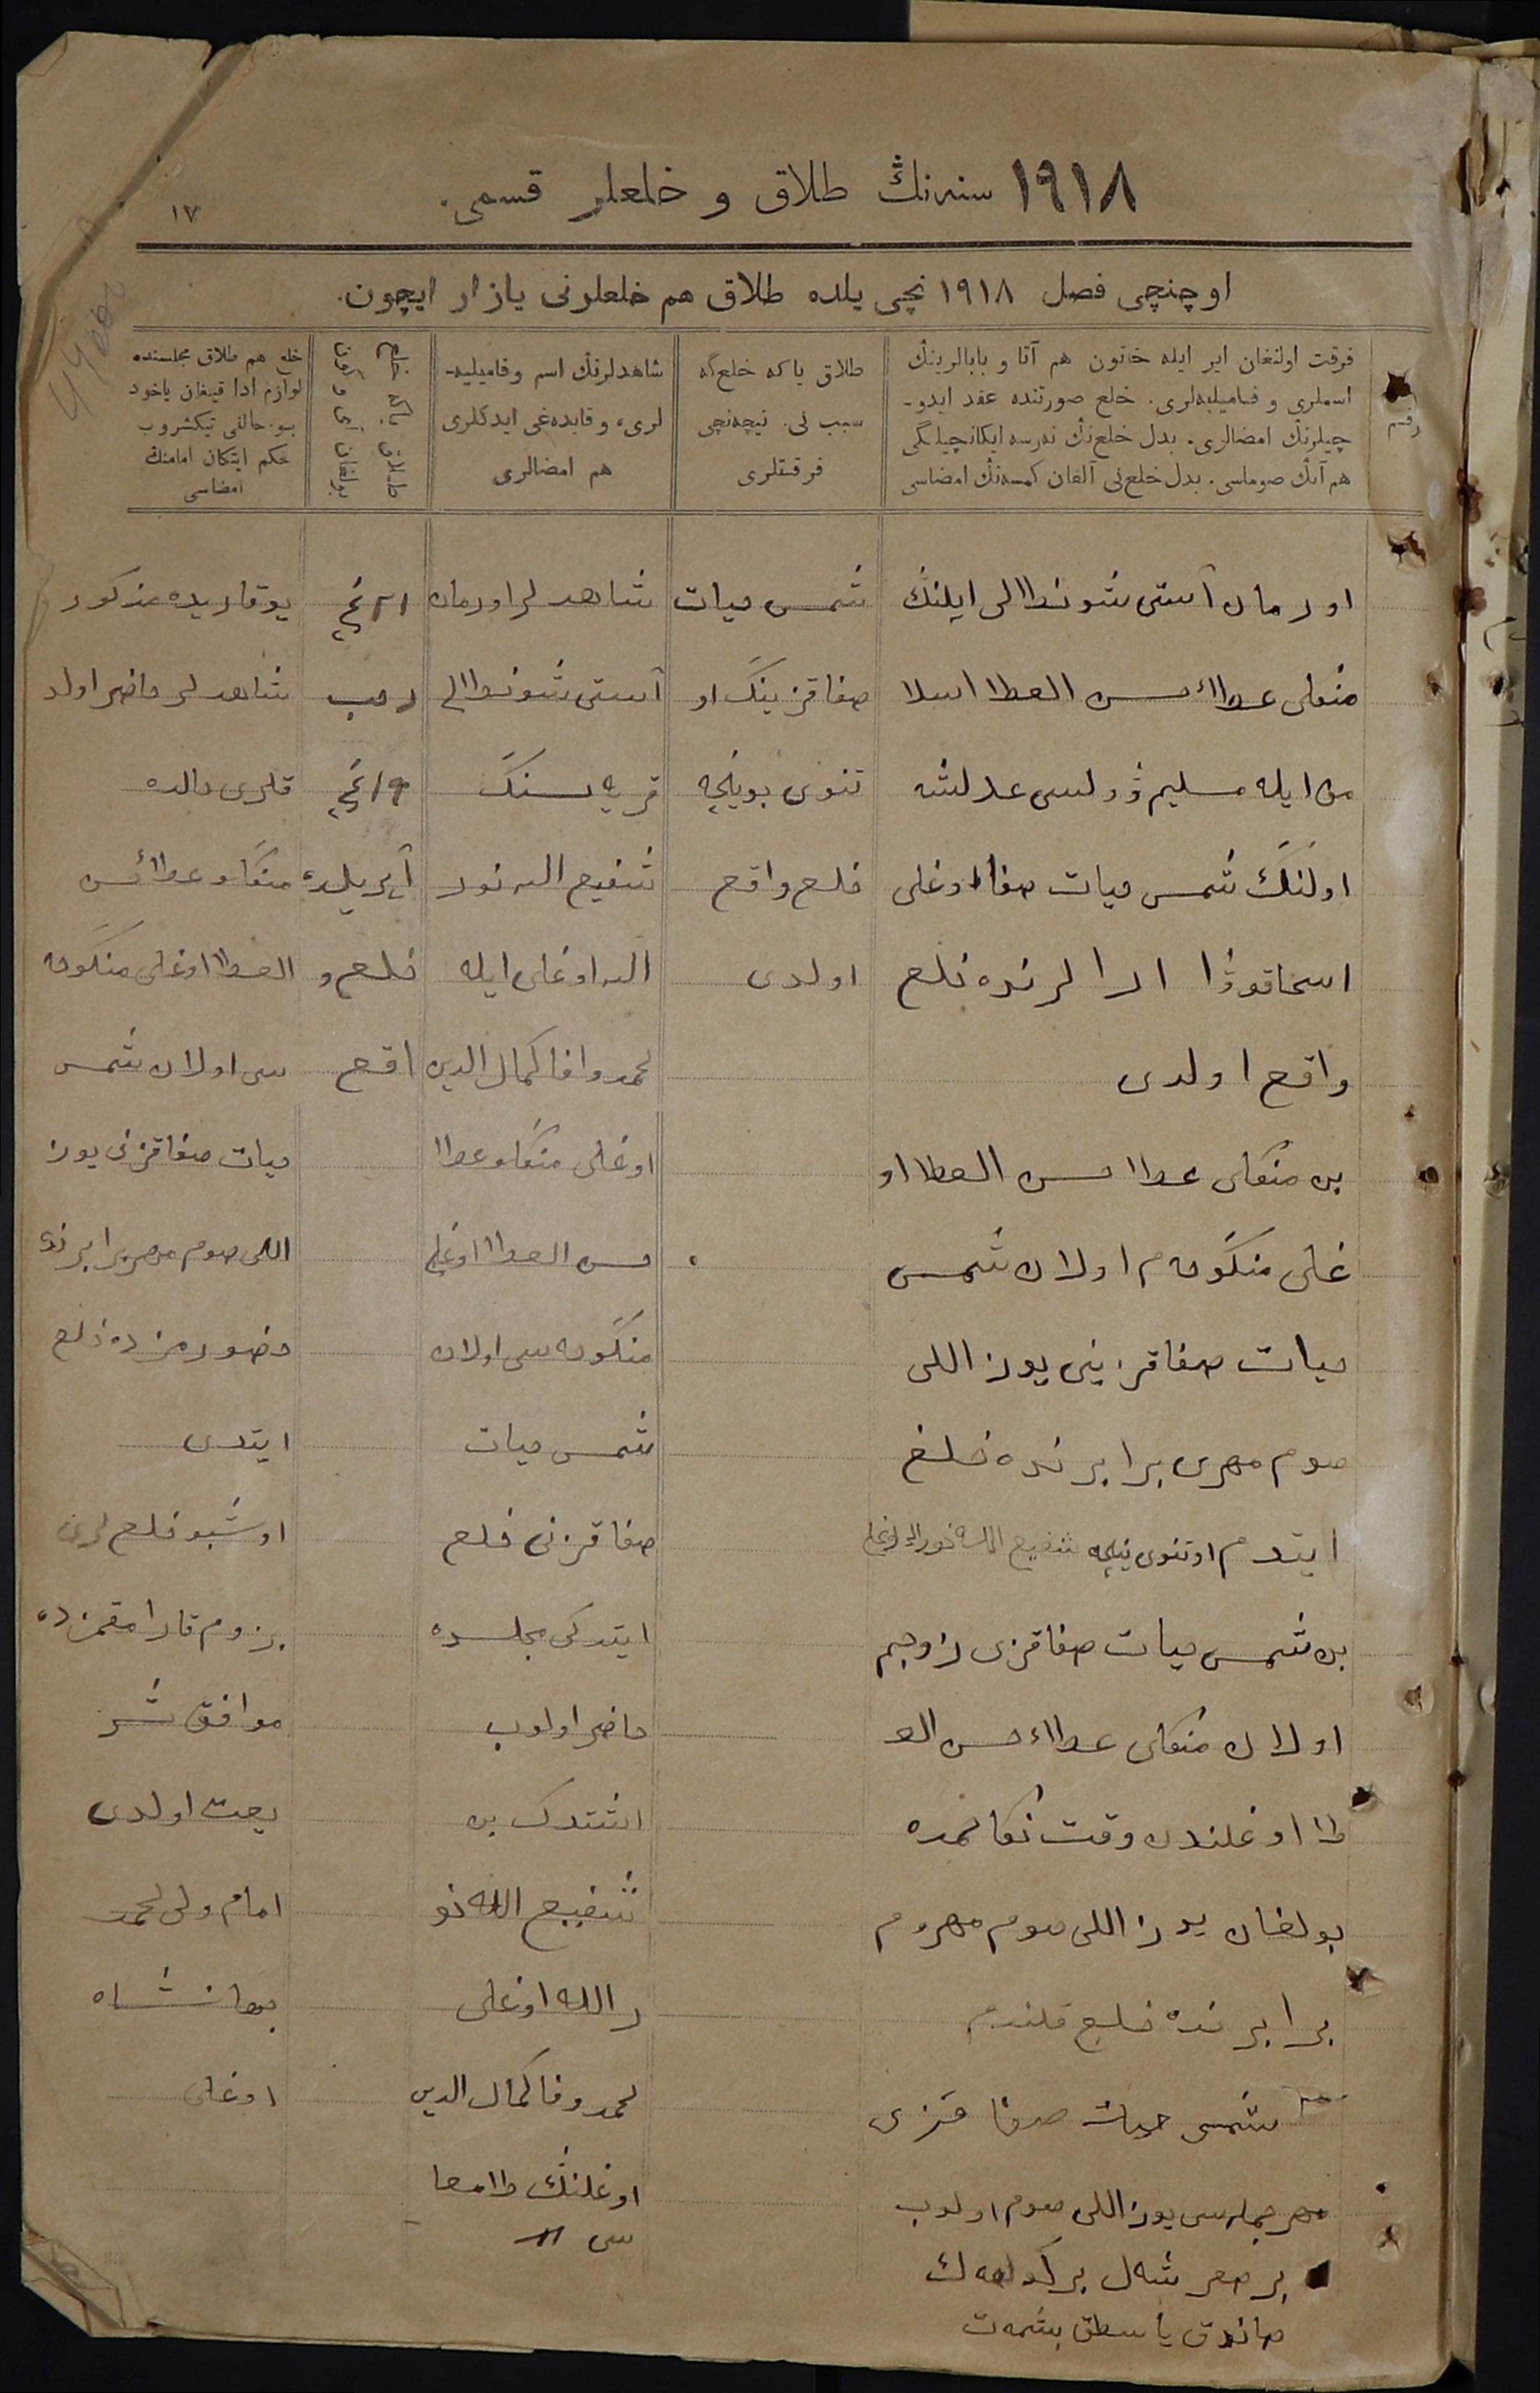 ١٩١٨ سنەنڭ طلاق و خلعلر قسمی.
١٧
اوچنچی فصل ١٩١٨ نچی یلدە طلاق هم خلعلرنی یازار ایچون.
رقم
فرقت اولنغان ایر ایلە خاتون هم آتا و بابالرینڭ
اسملری و فامیلیەلری. خلع صورتندە عقد ایدو-
چیلرنڭ امضالری. بدل خلع‌نڭ نەرسە ایکانچیلگی
هم آنڭ صوماسی. بدل خلع‌نی آلغان کمسەنڭ امضاسی
طلاق یاکە خلع‌گە
سبب نی. نیچەنچی
فرقتلری
شاهدلرنڭ اسم و فامیلیە-
لری، و قایدەغی ایدکلری
هم امضالری
طلاق یاکە خلع
بولغان آی و کون
خلع هم طلاق مجلسندە
لوازم ادا قیلغان یاخود
بو حالنی تیکشروب
حکم ایتکان امامنڭ
امضاسی
اورمان آستی شونطالی ایلنڭ
منکلی عطاء حسن العطا اسلا
من ایلە مسلیم وولسی عدلشە
اولنڭ شمس حیات صفا اوغلی
اسحاقووا ارالرندە خلع
واقع اولدی
بن منکلی عطا حسن العطا او
غلی منکوحەم اولان شمس
حیات صفا قزینی یوز اللی
صوم مهری برابرندە خلع
ایتدم اوتنوی نیلچە شفیع اللە نور اللە اوغلی
بن شمس حیات صفا قزی زوجم
اولان منکلی عطاء حسن الع
طا اوغلندن وقت نکاحمدە
بولغان یوز اللی صوم مهرم
برابرندە خلع قلندم
شمس حیات صفا قزی
مهر جملەسی یوز اللی صوم اولوب
بر صعر شەل بر کولمەک
صاندق یاسطق بشمەت
شمس حیات
صفا قزینڭ او
تنوی بوینچە
خلع واقع
اولدی
شاهدلر اورمان
آستی شونطالی
قریەسنڭ
شفیع اللە نور
اللە اوغلی ایلە
محمد وفا کمال الدین
اوغلی منکلو عطا
حسن العطا اوغلی
منکوحەسی اولان
شمس حیات
صفا قزنی خلع
ایتدکی مجلسدە
حاضر اولوب
اشتدک بن
شفیع اللە نو
ر اللە اوغلی
محمد وفا کمال الدین
اوغلنڭ طامغا
سی
٢١ نچی
رجب
١٩ نچی
آپریلدە
خلع و
اقع
یوقاریدە مذکور
شاهدلر حاضر اولد
قلری حالدە
منکلو عطا حسن
العطا اوغلی منکوحە
سی اولان شمس
حیات صفا قزنی یوز
اللی صوم مهر برابرندە
حضورمزدە خلع
ایتدی
اوشبو خلع لری
بزوم قارامقمزدە
موافق شر
یعت اولدی
امام ولی محمد
جهانشاە
اوغلی